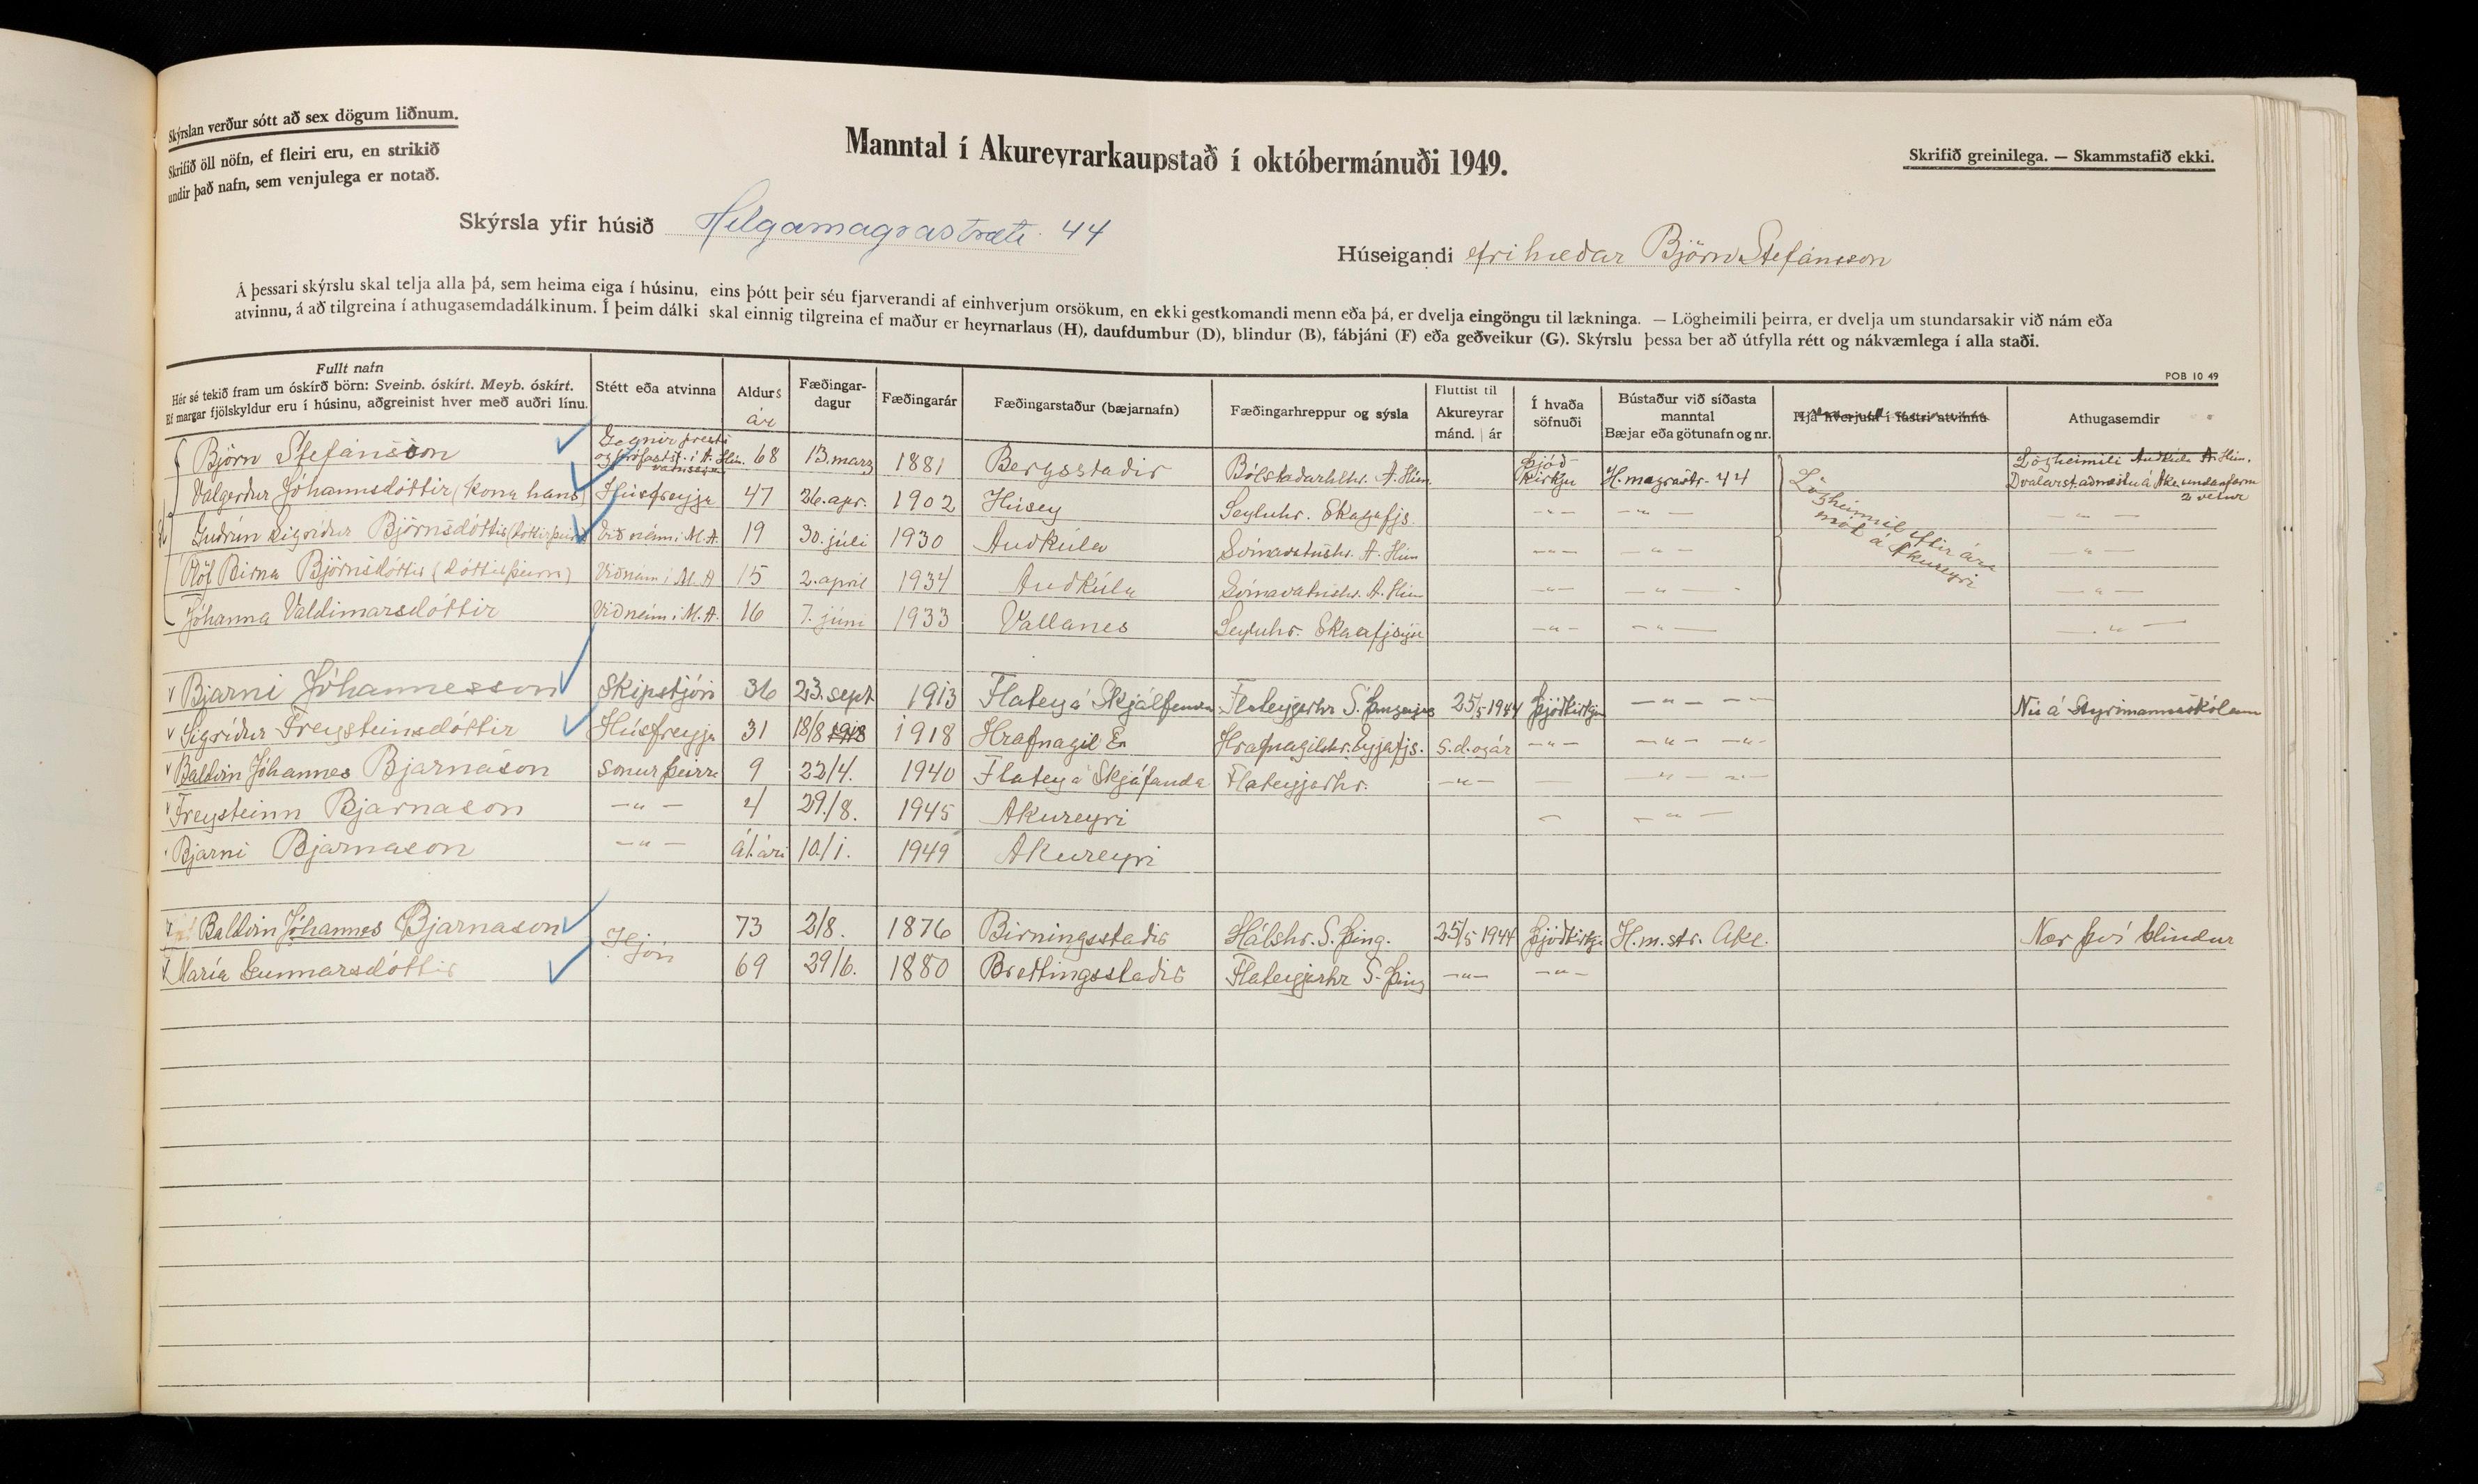 Skýrslan verður sótt að sex dögum liðnum.
Skrifið öll nöfn, ef fleiri eru, en strikið
undir það nafn, sem venjulega er notað.
Manntal í Akureyrarkaupstað í októbermánuði 1949.
Skrifið greinilega. — Skammstafið ekki.
Skýrsla yfir húsið Helgamagrastræti 44
Húseigandi efri hæðar Björn Stefánsson
Á þessari skýrslu skal telja alla þá, sem heima eiga í húsinu, eins þótt þeir séu fjarverandi af einhverjum orsökum, en ekki gestkomandi menn eða þá, er dvelja eingöngu til lækninga. — Lögheimili þeirra, er dvelja um stundarsakir við nám eða
atvinnu, á að tilgreina í athugasemdadálkinum. Í þeim dálki skal einnig tilgreina ef maður er heyrnarlaus (H), daufdumbur (D), blindur (B), fábjáni (F) eða geðveikur (G). Skýrslu þessa ber að útfylla rétt og nákvæmlega í alla staði.
POB 10 49
Fullt nafn
Hér sé tekið fram um óskírð börn: Sveinb. óskírt. Meyb. óskírt.
Ef margar fjölskyldur eru í húsinu, aðgreinist hver með auðri línu.
Stétt eða atvinna
Aldurs
ár
Fæðingar-
dagur
Fæðingarár
Fæðingarstaður (bæjarnafn)
Fæðingarhreppur og sýsla
Fluttist til
Akureyrar
mánd. | ár
Í hvaða
söfnuði
Bústaður við síðasta
manntal
Bæjar eða götunafn og nr.
Hjá hverjum í fastri atvinnu
Athugasemdir
Björn Stefánsson og prófastr. í A. Hún. 68 13. marz 1881 Bergsstaðir Bólstaðarhlhr. A. Hún. Þjóð-kirkju H. magrastr. 44 Lögheimili Auðkúla A. Hún.
Valgerður Jóhannsdóttir (kona hans) Húsfreyja 47 26. apr. 1902 Húsey Seyluhr. Skagafjs. -"- -"- Dvalarstað á Ak. undanfarna 2 vetur
Guðrún Sigríður Björnsdóttir (dóttir þeirra) Við nám í M.A. 19 30. júlí 1930 Auðkúla Svínavatnshr. A. Hún -"- -"- -"-
Ólöf Birna Björnsdóttir (dóttir þeirra) Við nám í M.A 15 2. apríl 1934 Auðkúla Svínavatnshr. A. Hún -"- -"- -"-
Jóhanna Valdimarsdóttir Við nám í M.A. 16 7. júní 1933 Vallanes Seyluhr. -"- -"- -"-
Lögheimil eftir ára
mót á Akureyri
Bjarni Jóhannesson Skipstjóri 36 23. sept 1913 Flatey á Skjálfanda Flateyjarhr S. Þingeyjs 25/5 1944 Þjóðkirkju -"- Nú á Stýrimannaskólanum
Sigríður Freysteinsdóttir Húsfreyja 31 18/8 1918 1918 Hrafnagil E. Hrafnagilshr. Eyjafjs. s.d. og ár -"- -"- -"-
Baldvin Jóhannes Bjarnason sonur þeirra 9 22/4. 1940 Flatey á Skjáfanda Flateyjarhr. -"- -"-
Freysteinn Bjarnason -"- 4 29./8. 1945 Akureyri -"-
Bjarni Bjarnason -"- á 1. ári 10./1. 1949 Akureyri
Baldvin Jóhannes Bjarnason Hjón 73 2/8. 1876 Birningsstaðir Hálshr. S. Þing. 25/5 1944 Þjóðkirkju H.m.str. Ake. Nær því blindur
María Gunnarsdóttir 69 29/6. 1880 Brettingsstaðir Flateyjarhr S. Þing -"- -"-